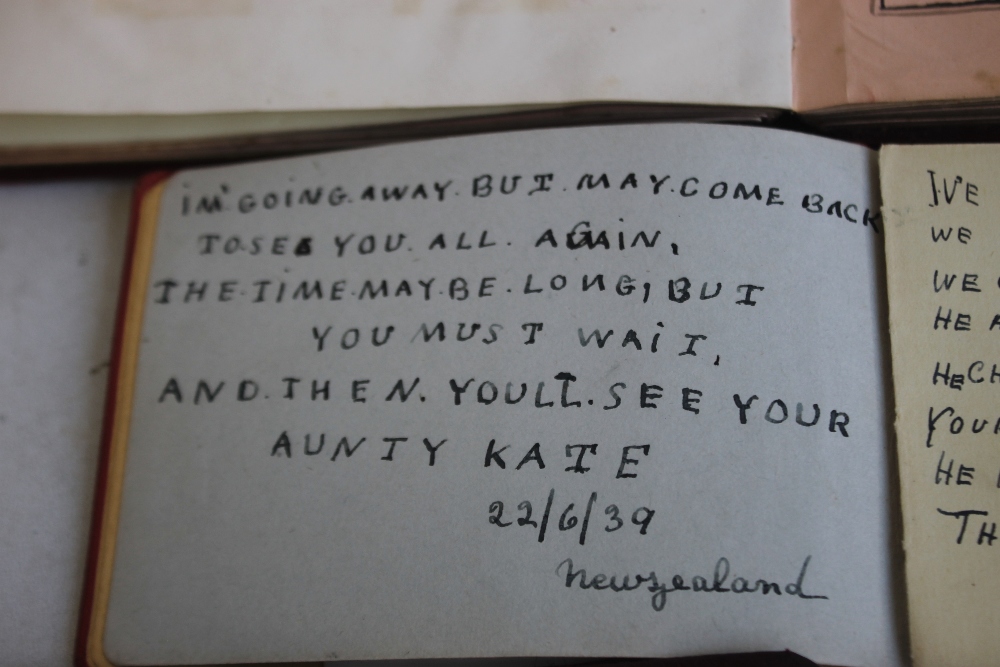 IM' GOING. AWAY. BUT. MAY. COME BACK
TO. SEE YOU. ALL. AGAIN,
THE. TIME. MAY. BE. LONG, BUT
YOU MUST WAIT,
AND. THEN. YOULL. SEE YOUR
AUNTY KATE
22/6/39
Newzealand
I'VE
WE
WE
HE
YOUR
HE